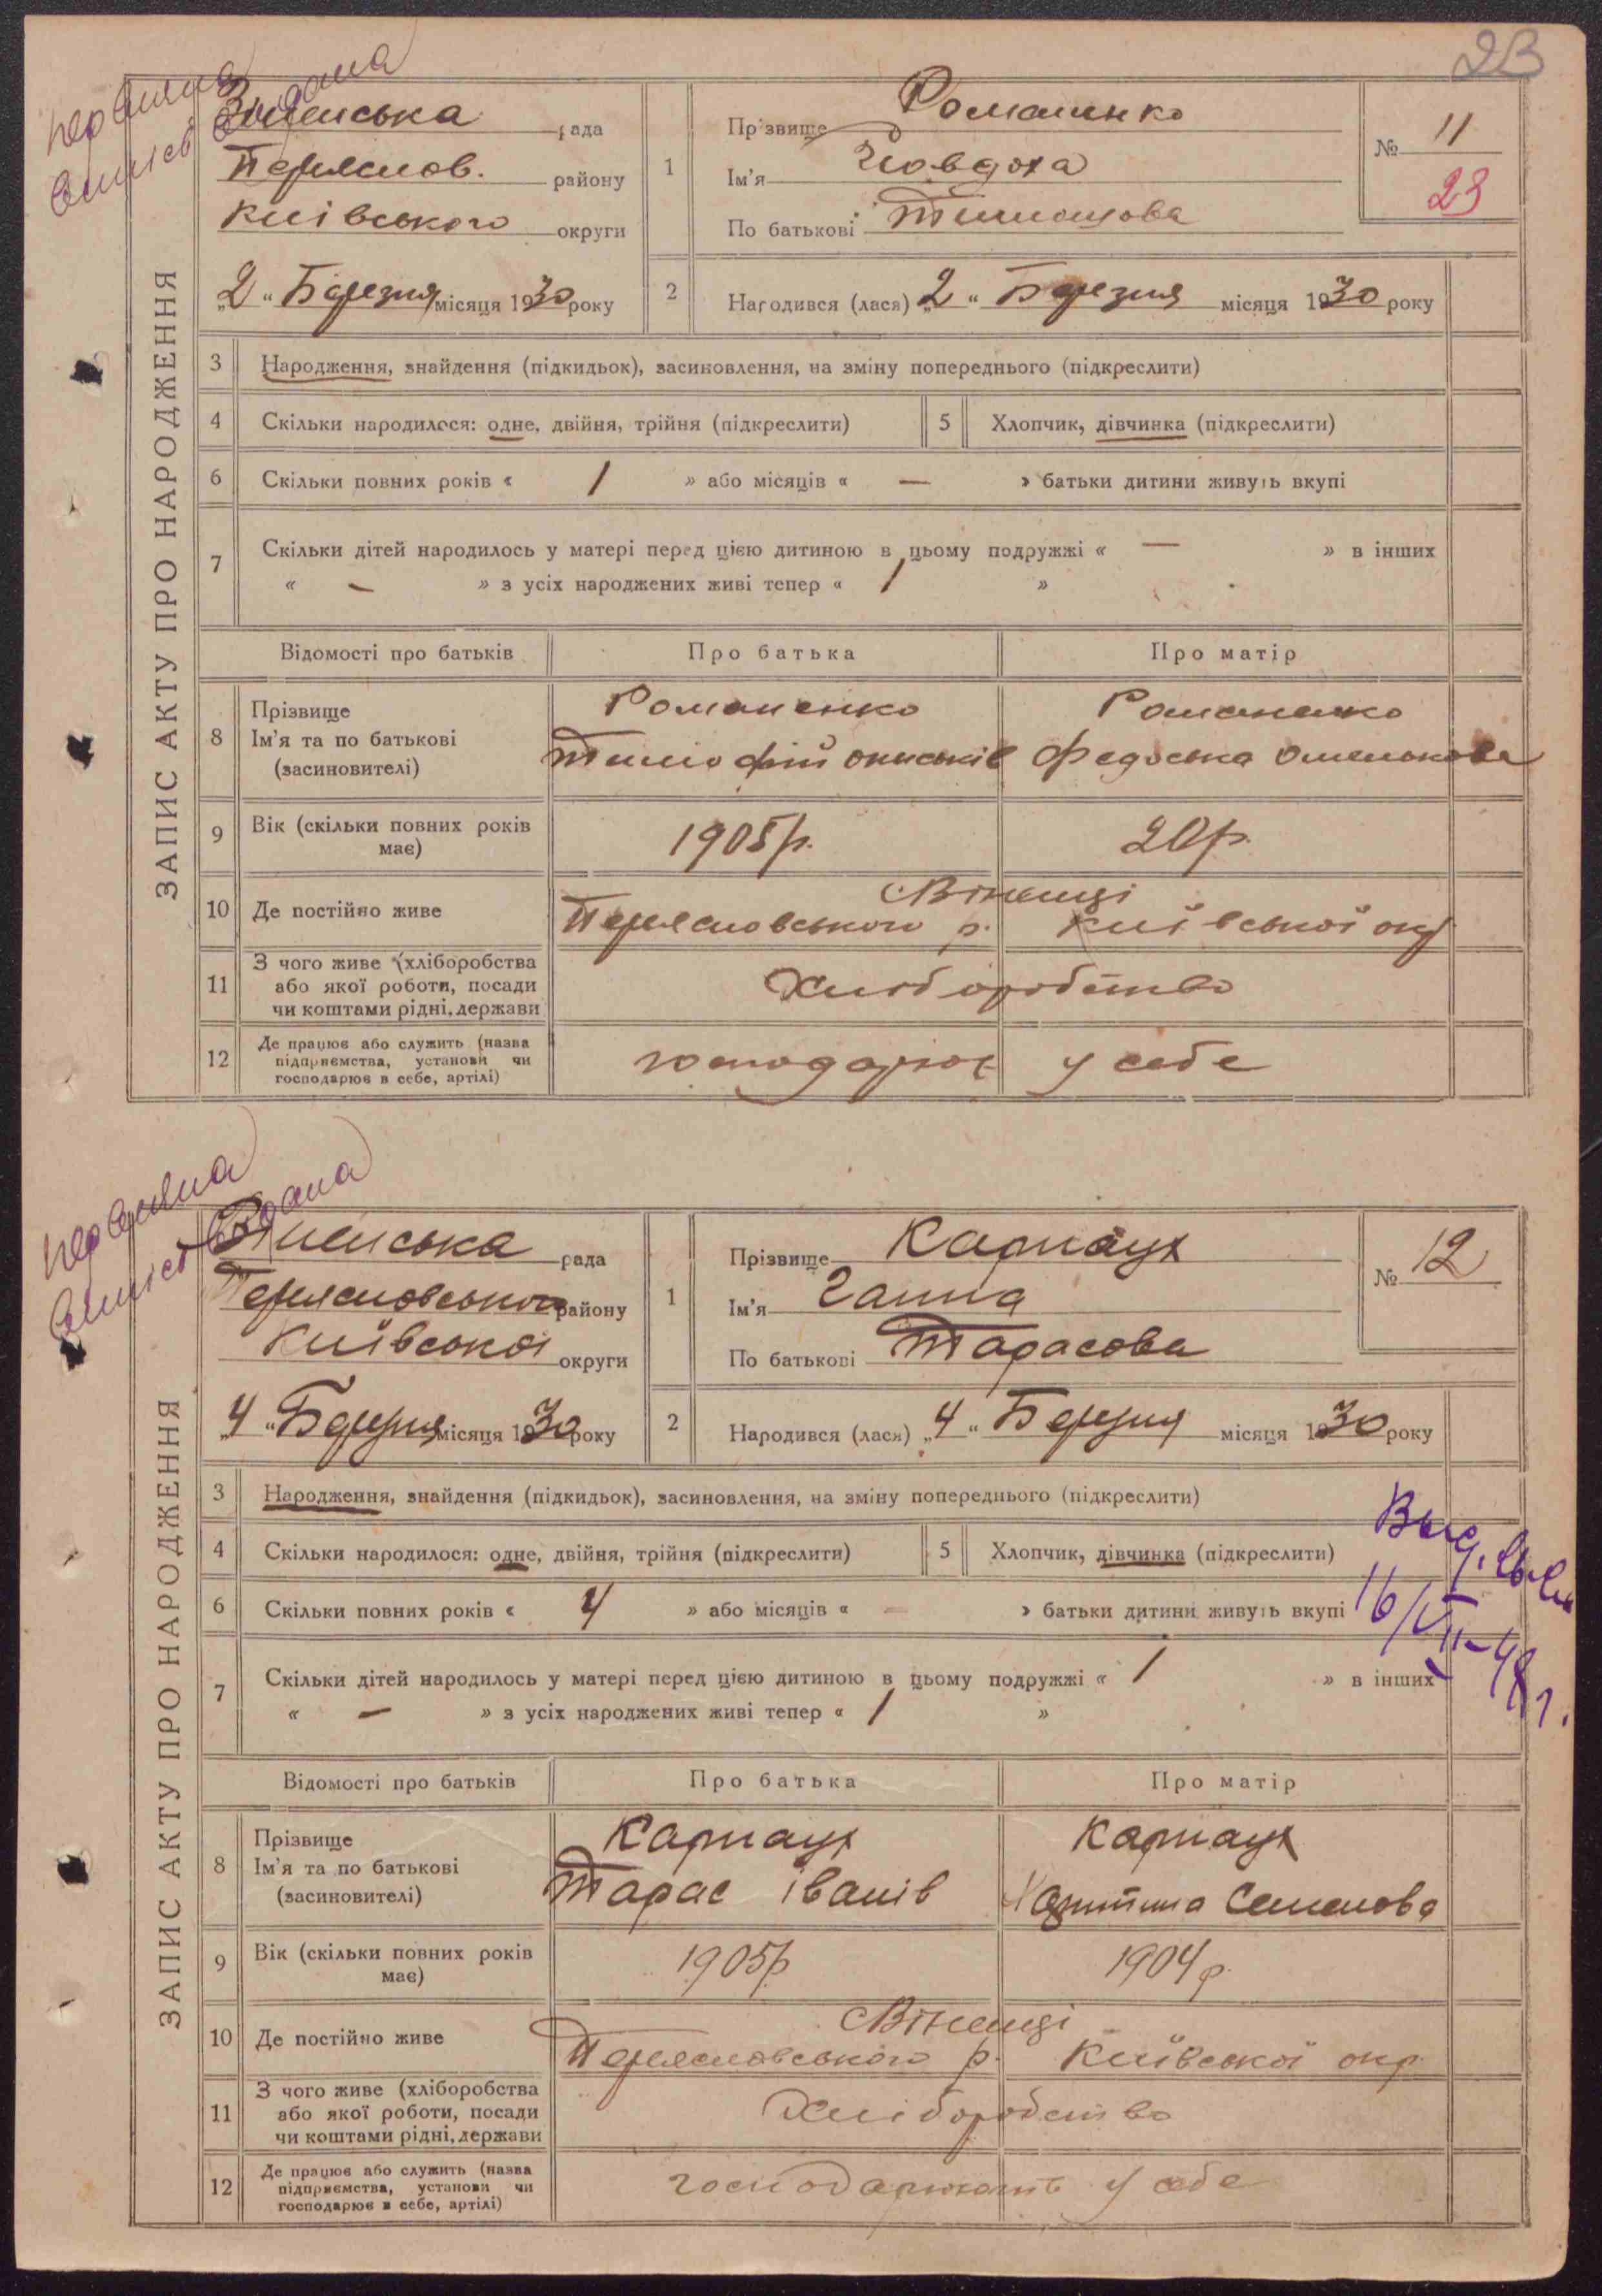 23
первична
виписв видана
ЗАПИС АКТУ ПРО НАРОДЖЕННЯ
рада
Переяслов. району
Київського округи
„2“ Березня місяця 1930 року
1
Прізвище Романенко
Ім'я Йовдоха
По батькові Тимошова
№ 11
23
2
Народився (лася) „2“ Березня місяця 1930 року
3 Народження, знайдення (підкидьок), засиновлення, на зміну попереднього (підкреслити)
4 Скільки народилося: одне, двійня, трійня (підкреслити)
5 Хлопчик, дівчинка (підкреслити)
6 Скільки повних років « 1 » або місяців « — » батьки дитини живуть вкупі
7 Скільки дітей народилось у матері перед цією дитиною в цьому подружжі « — » в інших
« — » з усіх народжених живі тепер « 1 »
Відомості про батьків Про батька Про матір
8 Прізвище
Ім'я та по батькові
(засиновителі)
Романенко
Тимофій
Романенко
Федоська Омелькова
9 Вік (скільки повних років
має)
1905 р. 20 р.
10 Де постійно живе
Вінинці
Переясловського р. Київської окр
11 З чого живе (хліборобства
або якої роботи, посади
чи коштами рідні, держави
Хліборобство
12 Де працює або служить (назва
підприємства, установи чи
господарює в себе, артілі)
господарює у себе
первична
виписв видана
ЗАПИС АКТУ ПРО НАРОДЖЕННЯ
рада
Переясловського району
Київської округи
„4“ Березня місяця 1930 року
1
Прізвище Карнаух
Ім'я Ганна
По батькові Тарасова
№ 12
2
Народився (лася) „4“ Березня місяця 1930 року
3 Народження, знайдення (підкидьок), засиновлення, на зміну попереднього (підкреслити)
4 Скільки народилося: одне, двійня, трійня (підкреслити)
5 Хлопчик, дівчинка (підкреслити)
6 Скільки повних років « 4 » або місяців « — » батьки дитини живуть вкупі
7 Скільки дітей народилось у матері перед цією дитиною в цьому подружжі « 1 » в інших
« — » з усіх народжених живі тепер « 1 »
Выд.
16/VII-48 г.
Відомості про батьків Про батька Про матір
8 Прізвище
Ім'я та по батькові
(засиновителі)
Карнаух
Тарас Іванів
Карнаух
Харитина Семенова
9 Вік (скільки повних років
має)
1905 р 1904 р.
10 Де постійно живе
Вінинці
Переясловського р. Київської окр.
11 З чого живе (хліборобства
або якої роботи, посади
чи коштами рідні, держави
Хліборобство
12 Де працює або служить (назва
підприємства, установи чи
господарює в себе, артілі)
господарюють у себе